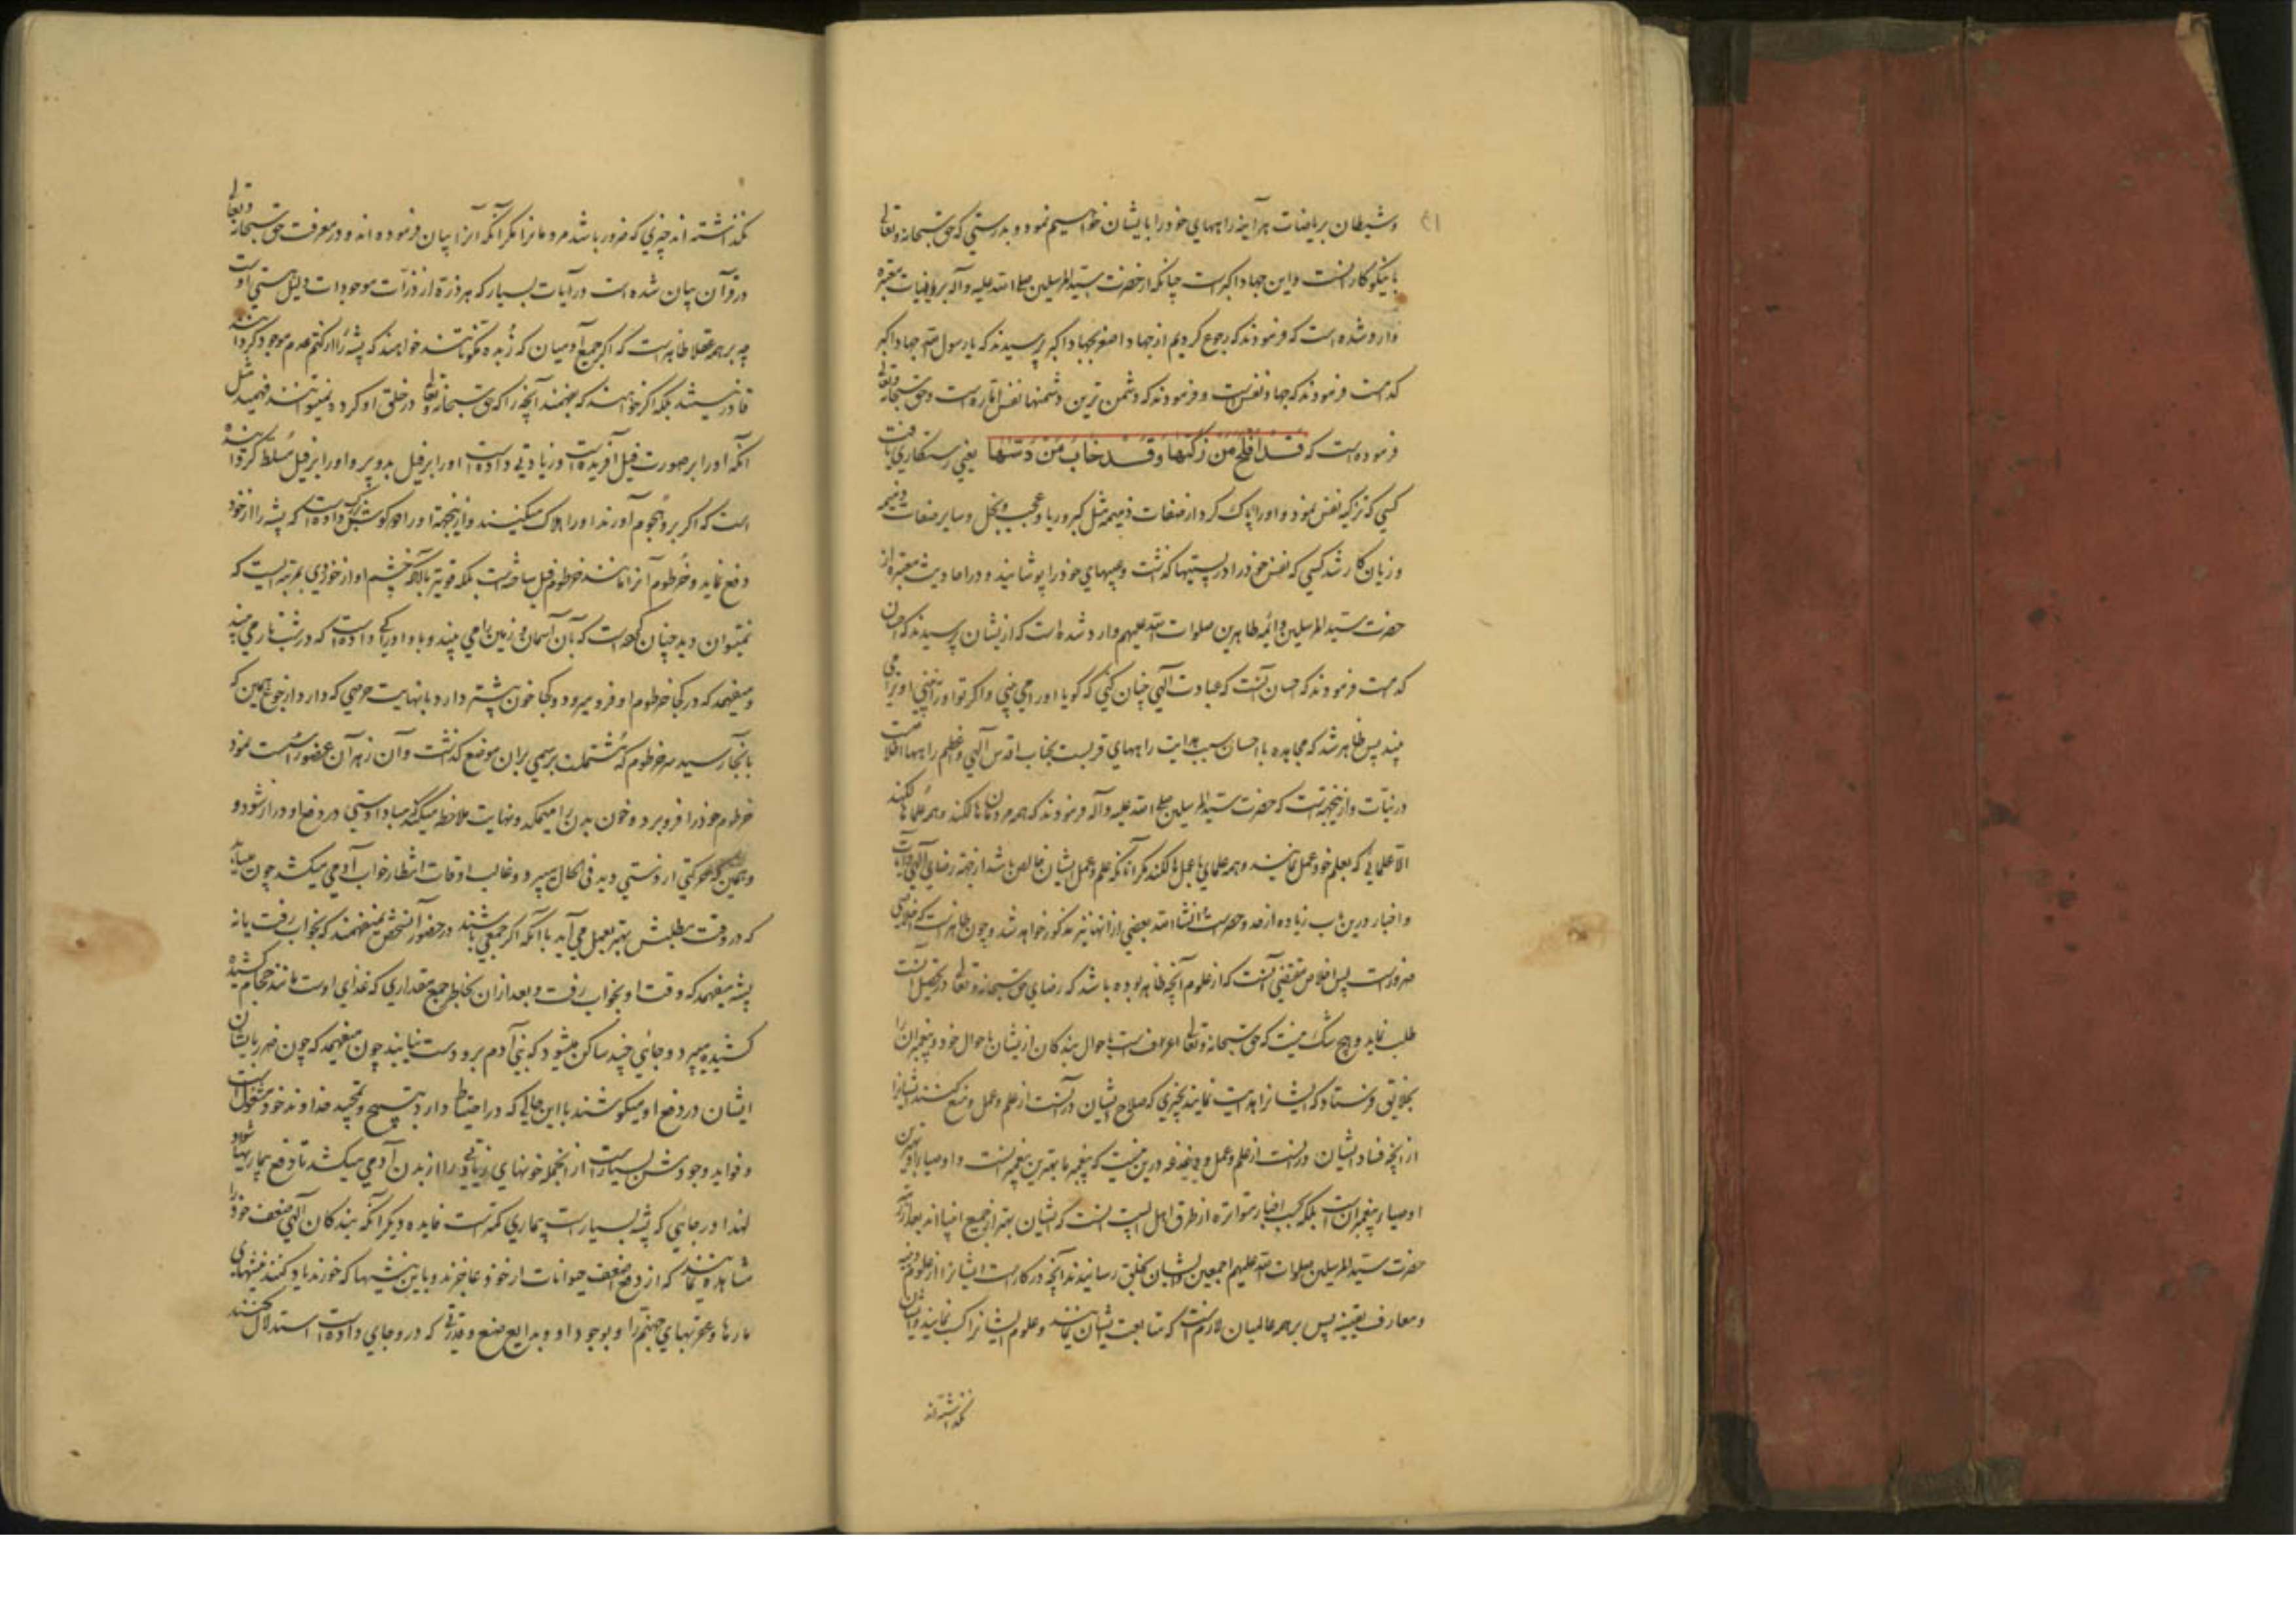 و شیطان بریاضات هرآینه راههای خود را بایشان خواهیم نمود و بدرستی که حق سبحانه وتعالی
با نیکوکارانست و این جهاد اکبرست چنانکه از حضرت سید المرسلین صلی الله علیه وآله بروایات معتبره
وارد شده است که فرمودند که رجوع کردیم از جهاد اصغر بجهاد اکبر پرسیدند که یا رسول الله جهاد اکبر
کدامست فرمودند که جهاد نفس است و فرمودند که دشمن ترین دشمنها نفس اماره است و حق سبحانه وتعالی
فرموده است که قَدْ اَفْلَحَ مَنْ زَکّیها وَقَدْ خابَ مَنْ دَسّیها یعنی رستکاری یافت
کسی که تزکیه نفس نمود و او را پاک کرد از صفات ذمیمه مثل کبر و ریا و عجب و بخل و سایر صفات ذمیمه
و زیان کار شد کسی که نفس خود را در پستیها کذاشت و عیبهای خود را پوشانید و در احادیث معتبره از
حضرت سید المرسلین و ائمه طاهرین صلوات الله علیهم وارد شده است که ازیشان پرسیدند که احسان
کدامست فرمودند که احسان آنست که عبادت الهی چنان کنی که کویا او را می بینی و اکر تو او را نبینی او ترا می
بیند پس ظاهر شد که مجاهده با احسان سبب هدایت راههای قربست بجناب اقدس الهی و اعظم راهها اخلاصست
در نیّات و ازینجهتست که حضرت سید المرسلین صلی الله علیه وآله فرمودند که همه مردمان هالکند و همه علما هالکند
الّا علمائی که بعلم خود عمل نمایند و همه علمای با عمل هالکند مکر آنانکه علم و عمل ایشان خالص باشد از جهة رضای الهی و آیات
و اخبار درین باب زیاده از حد و حصرست انشاء الله بعضی از انها نیز مذکور خواهد شد و چون ظاهرست که اخلاص
ضرورست پس اخلاص مقتضی آنست که از علوم آنچه ظاهر بوده باشد که رضای حق سبحانه وتعالی در تحصیل آنست
طلب نماید و هیچ شک نیست که حق سبحانه وتعالی اعرف است باحوال بندکان ازیشان باحوال خود و پیغمبران را
بخلایق فرستاد که ایشانرا هدایت نمایند بچیزی که صلاح ایشان در آنست از علم و عمل و منع کنند ایشانرا
از انچه فساد ایشان درانست از علم و عمل و دغدغه درین نیست که پیغمبر ما بهترین پیغمبرانست و اوصیاء او بهترین
اوصیاء پیغمبران است بلکه بحسب اخبار متواتره از طرق اهل البیت انست که ایشان بهتر از جمیع انبیااند بعد از
حضرت سید المرسلین صلوات الله علیهم اجمعین و ایشان بخلق رسانیدند آنچه در کارست ایشانرا از علوم دینیه
و معارف یقینیه پس بر همه عالمیان لازم است که متابعت ایشان نمایند و علوم ایشانرا کسب نمایند و ایشان
نکذاشته اند
نکذاشته اند چیزی که ضرور باشد مردمانرا مکر آنکه آنرا بیان فرموده اند و در معرفت حق سبحانه وتعالی
در قرآن بیان شده است در آیات بسیار که هر ذرّه از ذرّات موجودات دلیل هستی اوست
چه بر همه عقلا ظاهرست که اکر جمیع آدمیان که زُبده مکوناتند خواهند که پشه را از کتم عدم موجود کردانند
قادر نیستند بلکه اکر خواهند که بفهمند آنچه را که حق سبحانه وتعالی در خلق او کرده نمیتوانند فهمید مثل
آنکه او را بر صورت فیل آفریده است و زیادتی داده است او را بر فیل بدو پر و او را بر فیل مسلط کردانیده
است که اکر برو هجوم آورند او را هلاک میکنند و ازینجهة او را دو کوش بزرک داده است که پشه را از خود
دفع نماید و خرطوم آنرا مانند خرطوم فیل ساخته است بلکه قویتر باآنکه چشم او از خوردی بمرتبه ایست که
نمیتوان دید چنان کرده است که بآن آسمان و زمین را می بیند و باو ادراکی داده است که در شب تار می بیند
و میفهمد که در کجا خرطوم او فرو میرود و کجا خون بیشتر دارد با نهایت حرصی که دارد از جوع همین که
بانجا رسید سر خرطوم که مشتملست بر سمی بران موضع کذاشت و آن زهر آن عضو را سست نمود
خرطوم خود را فرو برده خون بدن را میمکد و نهایت ملاحظه میکند که مبادا دستی در دفع او دراز شود و
و همین که حرکتی از دستی دید فی الحال میپرد و غالب اوقات انتظار خواب آدمی میکشد چون میداند
که در وقت مطلبش بهتر بعمل می آید باآنکه اکر جمعی باشند در حضور آنشخص نمیفهمند که بخواب رفت یا نه
پشه میفهمد که وقت او بخواب رفت و بعد ازان بخاطر جمع مقداری که غذای اوست مانند حجام کشیده
کشیده میپرد و جائی چند ساکن میشود که بنی آدم برو دست نیابند چون میفهمد که چون ضرر بایشان
ایشان در دفع او میکوشند با این حالی که در احتیاط دارد بتسبیح و تمجید خداوند خود مشغولست
و فواید وجودش بسیار است از انجمله خونهای زیادتی را از بدن آدمی میکشد تا دفع بیماریها شود
لهذا در جائی که پشه بسیارست بیماری کمترست فایده دیکر آنکه بندکان الهی ضعف خود را
مشاهده نمایند که از دفع اضعف حیوانات از خود عاجزند و باین نیشها که خورند یاد کنند نیشهای
مارها و عقربهای جهنم را و بوجود او و بدایع صنع و قدرتی که درو جای داده است استدلال کنند